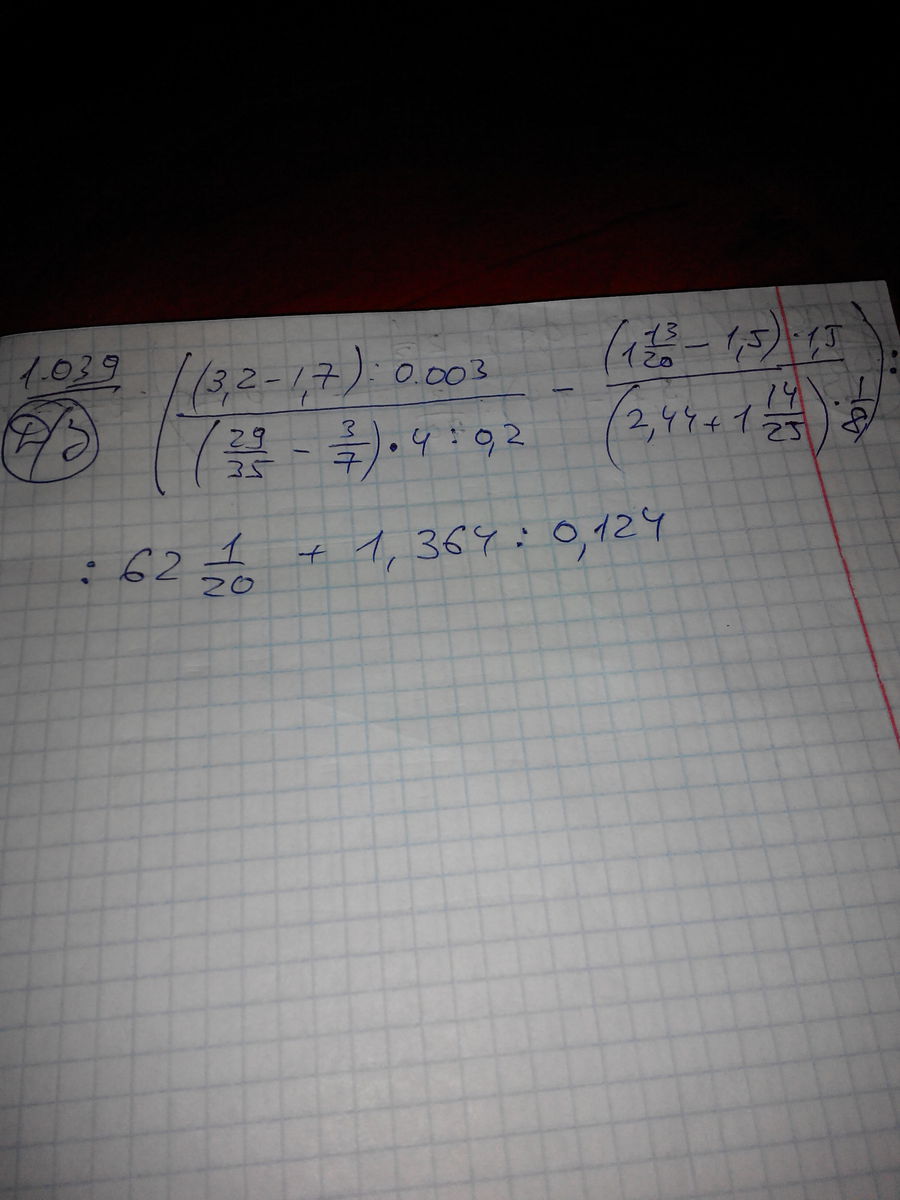 1.039 ( (3,2 - 1,7) : 0.003 / (29/35 - 3/7) · 4 : 0,2 - (1 13/20 - 1,5) · 1,5 / (2,44 + 1 14/25) · 1/8 ) :
Д/З
: 62 1/20 + 1,364 : 0,124